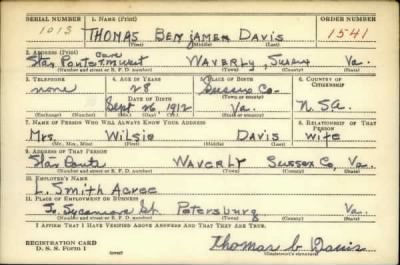 SERIAL NUMBER 1. NAME (Print) ORDER NUMBER
1013 THOMAS BENJAMEN DAVIS 1541
(First) (Middle) (Last)
2. ADDRESS (Print)
Star Route care WAVERLY, Sussex Va.
(Number and street or R. F. D. number) (Town) (County) (State)
3. TELEPHONE 4. AGE IN YEARS 5. PLACE OF BIRTH 6. COUNTRY OF CITIZENSHIP
none 28 Sussex Co.
DATE OF BIRTH (Town or county)
Sept 26, 1912 Va. U.S.A.
(Exchange) (Number) (Mo.) (Day) (Yr.) (State or country)
7. NAME OF PERSON WHO WILL ALWAYS KNOW YOUR ADDRESS 8. RELATIONSHIP OF THAT PERSON
Mrs. Wilsie Davis wife
(Mr., Mrs., Miss) (First) (Middle) (Last)
9. ADDRESS OF THAT PERSON
Star Route WAVERLY Sussex Co. Va.
(Number and street or R. F. D. number) (Town) (County) (State)
10. EMPLOYER'S NAME
L. Smith Acree
11. PLACE OF EMPLOYMENT OR BUSINESS
So. Sycamore St. Petersburg Va.
(Number and street or R. F. D. number) (Town) (County) (State)
I AFFIRM THAT I HAVE VERIFIED ABOVE ANSWERS AND THAT THEY ARE TRUE.
REGISTRATION CARD
D. S. S. Form 1 Thomas b Davis
(Registrant's signature)